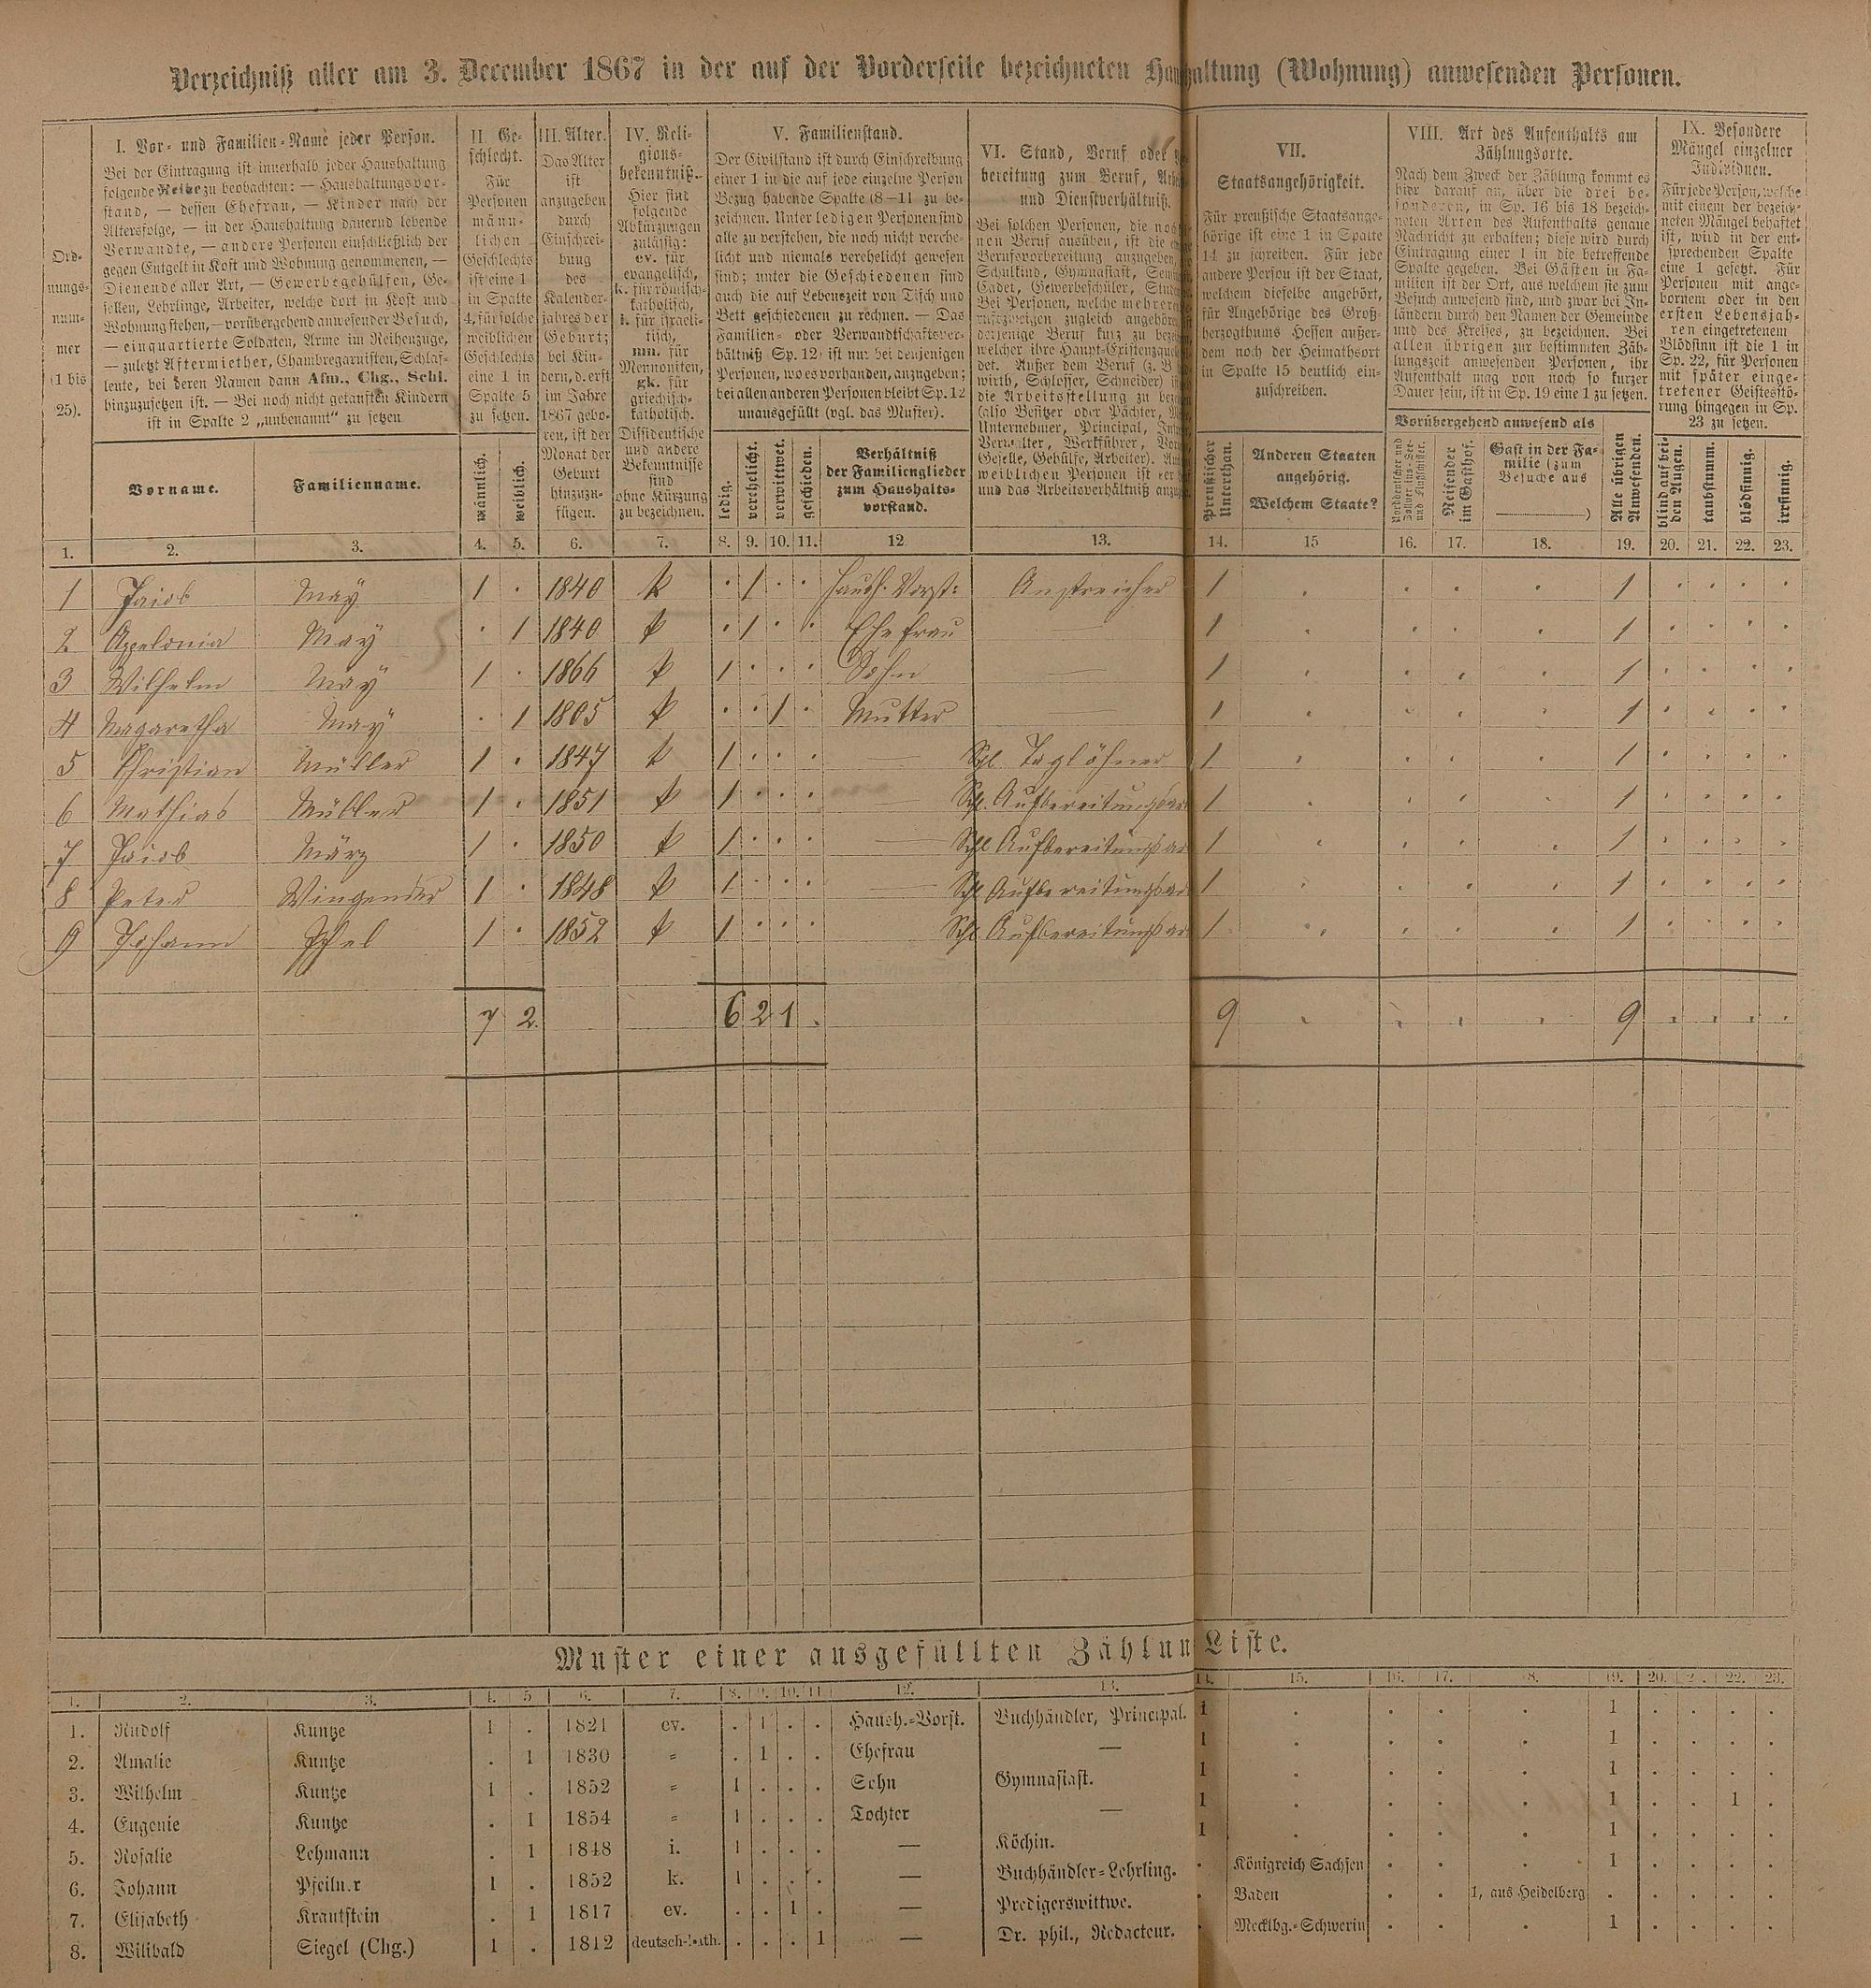 Verzeichniß aller am 3. December 1867 in der auf der Vorderseite bezeichneten Haushaltung (Wohnung) anwesenden Personen.
Ord-
nungs-
num-
mer
(1 bis
25).
I. Vor- und Familien-Name jeder Person.
Bei der Eintragung ist innerhalb jeder Haushaltung
folgende Reihe zu beobachten: — Haushaltungsvor-
stand, — dessen Ehefrau, — Kinder nach der
Altersfolge, — in der Haushaltung dauernd lebende
Verwandte, — andere Personen einschließlich der
gegen Entgelt in Kost und Wohnung genommenen, —
Dienende aller Art, — Gewerbegehülfen, Ge-
sellen, Lehrlinge, Arbeiter, welche dort in Kost und
Wohnung stehen, — vorübergehend anwesender Besuch,
— einquartierte Soldaten, Arme im Reihenzuge,
— zuletzt Aftermiether, Chambregarnisten, Schlaf-
leute, bei deren Namen dann Afm., Chg., Schl.
hinzuzusetzen ist. — Bei noch nicht getauften Kindern
ist in Spalte 2 „unbenannt“ zu setzen
Vorname.
Familienname.
II. Ge-
schlecht.
Für
Personen
männ-
lichen
Geschlechts
ist eine 1
in Spalte
4, für solche
weiblichen
Geschlechts
eine 1 in
Spalte 5
zu setzen.
männlich.
weiblich.
III. Alter.
Das Alter
ist
anzugeben
durch
Einschrei-
bung
des
Kalender-
jahres der
Geburt;
bei Kin-
dern, d. erst
im Jahre
1867 gebo-
ren, ist der
Monat der
Geburt
hinzuzu-
fügen.
IV. Reli-
gions-
bekenntniß.
Hier sind
folgende
Abkürzungen
zulässig:
ev. für
evangelisch,
k. für römisch-
katholisch,
i. für israeli-
tisch,
mn. für
Mennoniten,
gk. für
griechisch-
katholisch.
Dissidentische
und andere
Bekenntnisse
sind
ohne Kürzung
zu bezeichnen.
V. Familienstand.
Der Civilstand ist durch Einschreibung
einer 1 in die auf jede einzelne Person
Bezug habende Spalte (8—11) zu be-
zeichnen. Unter ledigen Personen sind
alle zu verstehen, die noch nicht verehe-
licht und niemals verehelicht gewesen
sind; unter die Geschiedenen sind
auch die auf Lebenszeit von Tisch und
Bett geschiedenen zu rechnen. — Das
Familien- oder Verwandtschaftsver-
hältniß Sp. 12 ist nur bei denjenigen
Personen, wo es vorhanden, anzugeben;
bei allen anderen Personen bleibt Sp. 12
unausgefüllt (vgl. das Muster).
ledig.
verehelicht.
verwittwet.
geschieden.
Verhältniß
der Familienglieder
zum Haushalts-
vorstand.
VI. Stand, Beruf oder
bereitung zum Beruf,
und Dienstverhältniß.
Bei solchen Personen, die
nen Beruf ausüben, ist die
Berufsvorbereitung anzugeben,
Schulkind, Gymnasiast,
Cadet, Gewerbeschüler,
Bei Personen, welche mehreren
zugleich angehören
derjenige Beruf kurz zu
welcher ihre Haupt-Existenzquelle
det. Außer dem Beruf (z. B.
wirth, Schlosser, Schneider)
die Arbeitsstellung zu
(also Besitzer oder Pächter,
Unternehmer, Principal,
Verwalter, Werkführer,
Geselle, Gehülfe, Arbeiter).
weiblichen Personen ist
und das Arbeitsverhältniß
VII.
Staatsangehörigkeit.
Für preußische Staatsange-
hörige ist eine 1 in Spalte
14 zu schreiben. Für jede
andere Person ist der Staat,
welchem dieselbe angehört,
für Angehörige des Groß-
herzogthums Hessen außer-
dem noch der Heimathsort
in Spalte 15 deutlich ein-
zuschreiben.
Preußischer
Unterthan.
Anderen Staaten
angehörig.
Welchem Staate?
VIII. Art des Aufenthalts am
Zählungsorte.
Nach dem Zweck der Zählung kommt es
hier darauf an, über die drei be-
sonderen, in Sp. 16 bis 18 bezeich-
neten Arten des Aufenthalts genaue
Nachricht zu erhalten; diese wird durch
Eintragung einer 1 in die betreffende
Spalte gegeben. Bei Gästen in Fa-
milien ist der Ort, aus welchem sie zum
Besuch anwesend sind, und zwar bei In-
ländern durch den Namen der Gemeinde
und des Kreises, zu bezeichnen. Bei
allen übrigen zur bestimmten Zäh-
lungszeit anwesenden Personen, ihr
Aufenthalt mag von noch so kurzer
Dauer sein, ist in Sp. 19 eine 1 zu setzen.
Vorübergehend anwesend als
Norddeutscher und
Zollvereins-See-
und Flußschiffer.
Reisender
im Gasthof.
Gast in der Fa-
milie (zum
Besuche aus
)
Alle übrigen
Anwesenden.
IX. Besondere
Mängel einzelner
Individuen.
Für jede Person, welche
mit einem der bezeich-
neten Mängel behaftet
ist, wird in der ent-
sprechenden Spalte
eine 1 gesetzt. Für
Personen mit ange-
bornem oder in den
ersten Lebensjah-
ren eingetretenem
Blödsinn ist die 1 in
Sp. 22, für Personen
mit später einge-
tretener Geistesstö-
rung hingegen in Sp.
23 zu setzen.
blind auf bei-
den Augen.
taubstumm.
blödsinnig.
irrsinnig.
1. 2. 3. 4. 5. 6. 7. 8. 9. 10. 11. 12 13. 14. 15 16. 17. 18. 19. 20. 21. 22. 23.
1 Jacob May 1 . 1840 k . 1 . . Haush. Vorst: Anstreicher 1 . . . . 1 . . . .
2 Appelonia May . 1 1840 k . 1 . . Ehefrau — 1 . . . . 1 . . . .
3 Wilhelm May 1 . 1866 k 1 . . . Sohn — 1 . . . . 1 . . . .
4 Magaretha May . 1 1805 k . . 1 . Mutter — 1 . . . . 1 . . . .
5 Christian Müller 1 . 1847 k 1 . . . — Schl. Taglöhner 1 . . . . 1 . . . .
6 Mathias Müller 1 . 1851 k 1 . . . — Schl. Aufbereitungsar 1 . . . . 1 . . . .
7 Jacob März 1 . 1850 k 1 . . . — Schl Aufbereitungsar 1 . . . . 1 . . . .
8 Peter Wingender 1 . 1848 k 1 . . . — Schl Aufbereitungsar 1 . . . . 1 . . . .
9 Johann 1 . 1852 k 1 . . . Schl. Aufbereitungsar 1 . . . . 1 . . . .
7 2. 6 2 1 . 9 . . . . 9 . . . .
Muster einer ausgefüllten Zählun Liste.
1. 2. 3. 4. 5 6. 7. 8. 9. 10. 11 12. 13. 14. 15. 16. 17. 18. 19. 20. 21. 22. 23.
1. Rudolf Kuntze 1 . 1821 ev. . 1 . . Haush.-Vorst. Buchhändler, Principal. 1 . . . . 1 . . . .
2. Amalie Kuntze . 1 1830 = . 1 . . Ehefrau — 1 . . . . 1 . . . .
3. Wilhelm Kuntze 1 . 1852 = 1 . . . Sohn Gymnasiast. 1 . . . . 1 . . . .
4. Eugenie Kuntze . 1 1854 = 1 . . . Tochter — 1 . . . . 1 . . 1 .
5. Rosalie Lehmann . 1 1848 i. 1 . . . — Köchin. 1 . . . . 1 . . . .
6. Johann Pfeilner 1 . 1852 k. 1 . . . — Buchhändler-Lehrling. . Königreich Sachsen . . . 1 . . . .
7. Elisabeth Krautstein . 1 1817 ev. . . 1 . — Predigerswittwe. . Baden . . 1, aus Heidelberg . . . . .
8. Wilibald Siegel (Chg.) 1 . 1812 deutsch-kath. . . . 1 — Dr. phil., Redacteur. . Mecklbg.-Schwerin . . . 1 . . . .